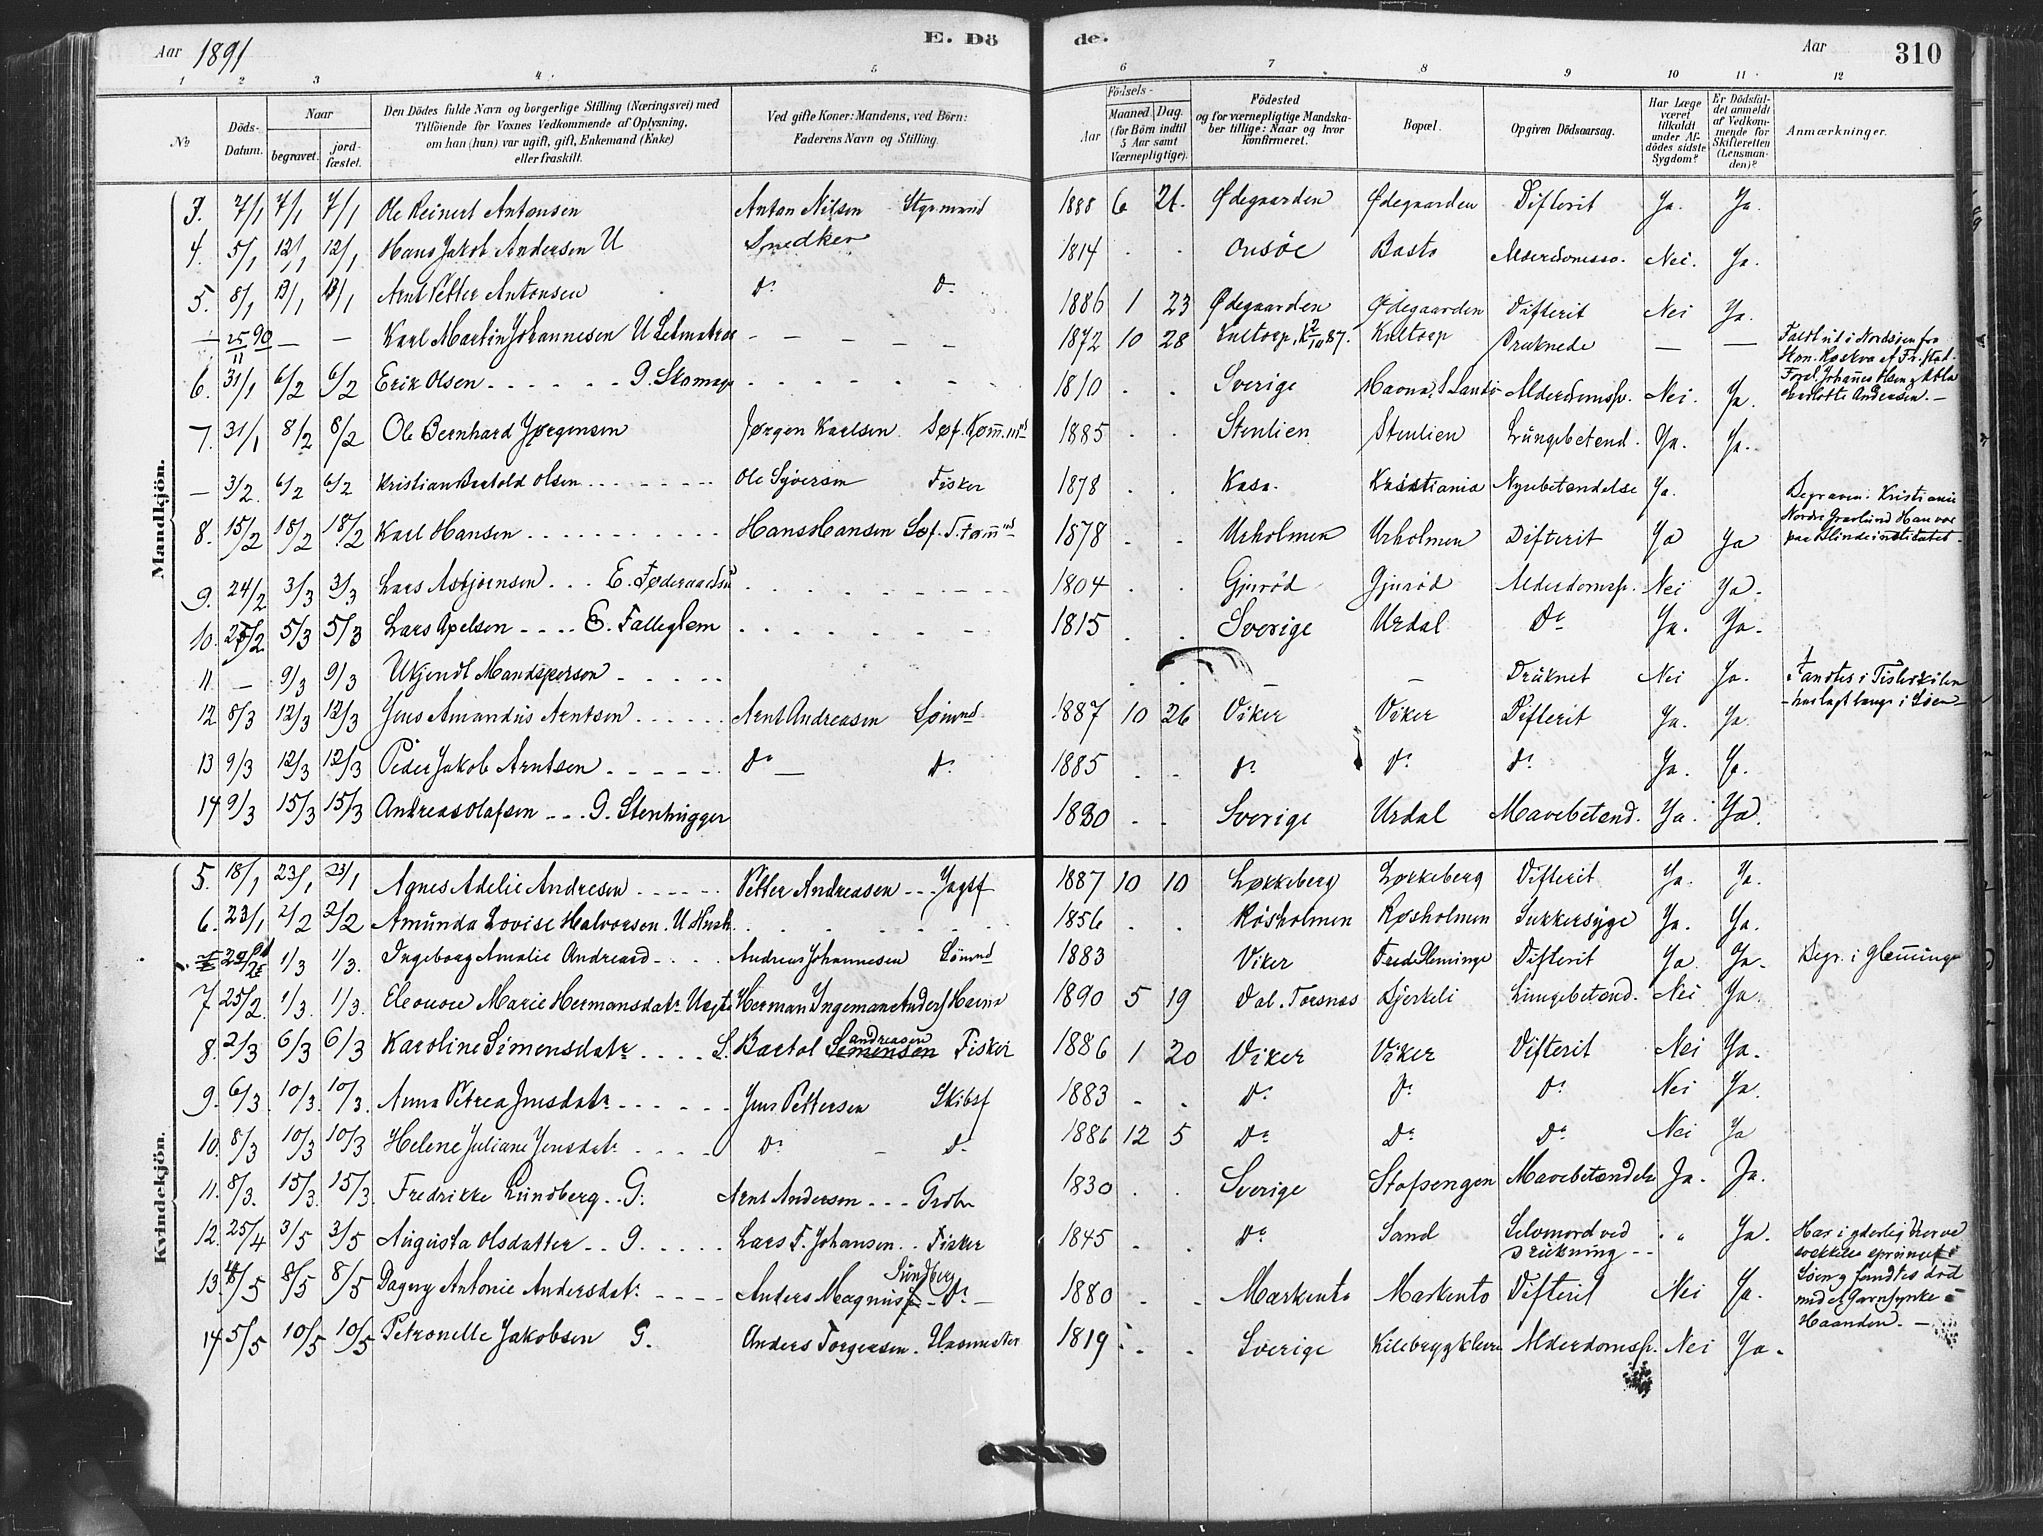 Aar 1891 E. Dö de. Aar 310
1 2 3 4 5 6 7 8 9 10 11 12
№ Döds-Datum. Naar begravet. jord-fæstet. Den Dödes fulde Navn og borgerlige Stilling (Næringsvei) med Tilföiende for Voxnes Vedkommende af Oplysning, om han (hun) var ugift, gift, Enkemand (Enke) eller fraskilt. Ved gifte Koner: Mandens, ved Börn: Faderens Navn og Stilling. Födsels- Aar Maaned. Dag. (for Börn indtil 5 Aar samt Værnepligtige). Födested og for værnepligtige Mandskaber tillige: Naar og hvor konfirmeret. Bopæl. Opgiven Dödsaarsag. Har Læge været tilkaldt under Afdödes sidste Sygdom? Er Dödsfaldet anmeldt af Vedkommende for Skifteretten (Lensmanden)? Anmærkninger.
Mandkjön.
3. 7/1 7/1 7/1 Ole Reinert Antonsen Anton Nilsen Styrmand 1888 6 21. Ødegaarden Ødegaarden Difterit Ja. Ja.
4. 5/1 12/1 12/1 Hans Jakob Andersen U Snedker 1814 - - Onsöe Basto Nei. Ja.
5. 8/1 13/1 13/1 Arnt Petter Antonsen Do Do 1886 1 23 Ødegaarden Ødegaarden Difterit Nei Ja.
— 25/11 90 — — Karl Martin Johannesen U - - - - - 1872 10 28 Kultorp, K 2/10 87. Kultorp Druknede — — Faldt ud i Nordsjøen fra
6. 31/1 6/2 6/2 Erik Olsen - - - - - - G. Skomager - - - - - 1810 - - Sverige Alderdomssv. Nei. Ja. Foræl. Johannes Olsen & Charlotte Andersen. —
7. 31/1 8/2 8/2 Ole Bernhard Jørgensen Jørgen Karlsen 1885 - - Stenlien Stenlien Lungebetænd. Ja. Ja.
— 3/2 6/2 6/2 Kristian Olsen - - - - - Ole Syversen Fisker 1878 - - Kasa. Kristiania Nyrebetændelse Ja. Begraven i Kristiania Nordre Gravlund Han var paa Blindeinstitutet -
8. 15/2 18/2 18/2 Karl Hansen - - - - - Hans Hansen 1878 - - Urholmen Urholmen Difterit Ja Ja
9. 24/2 3/3 3/3 Lars Asbjörnsen - - - E. - - - - - 1804 - - Gjurød Gjurød Alderdomssv. Nei Ja.
10. 5/3 5/3 Lars Axelsen - - - - E. Fattiglem - - - - - 1815 - - Sverige Urdal Do Ja. Ja.
11 — 9/3 9/3 Ukjendt Mandsperson - - - - - - - — — Druknet Nei Ja. Fandtes i Tislerkilen - har lagt længe i Søen -
12 8/3 12/3 12/3 Jens Amandus Arntsen - - - - - Arnt Andreasen Sømnd 1887 10 26 Viker Viker Difterit Ja. Ja.
13 9/3 12/3 12/3 Peder Jakob Arntsen - - - - - Do — Do 1885 - - Do Do Do Ja. Ja.
14 9/3 15/3 15/3 Andreas Olafsen - - - G. Stenhugger 1830 - - Sverige Urdal Mavebetænd. Ja. Ja.
Kvindekjön.
5. 18/1 23/1 23/1 Agnes Adelie Andresen - - - - - Petter Andreasen - - - 1887 10 10 Løkkeberg Løkkeberg Difterit Ja. Ja.
6. 23/1 2/2 2/2 Amunda Lovise Halvorsen. U - - - - - 1856 - - Røsholmen Røsholmen Sukkersyge Ja. Ja.
1/3 1/3. Ingeborg Amalie - - - - Andreas Johannesen Sømnd 1883 Viker Difterit Ja Ja. Begr. i Glemminge
7. 25/2 1/3. 1/3. Eleonore Marie Hermansdatr Herman Ingeman 1890 5 19 Dal. Torsnæs Bjerkeli Lungebetænd. Nei Ja.
8. 2/3 6/3 6/3 Karoline Simensdatr - - - - Bartol Simensen Andreasen Fisker 1886 1 20 Viker Viker Difterit Nei Ja.
9. 6/3 10/3. 10/3. Anna Petrea Jensdatr - - - - - Jens Pettersen Skibsf 1883 - - Do Do Do Nei Ja.
10. 8/3 10/3 10/3 Helene Juliane Jensdatr - - - - Do - Do 1886 12 5 Do Do Do Nei Ja
11. 8/3. 15/3. 15/3. Fredrikke Lundberg - - G. Arnt Andersen - - - 1830 - - Sverige Stafsengen Mavebetændelse Ja. Ja.
12. 25/4 3/5 3/5 Augusta Olsdatter - - G. - - - - - Lars F. Johansen - - Fisker 1845 - - Do Sand Selvmord ved Drukning - - - " Ja. Har i yderlig Nerve svækkelse sprunget i Søen og fandtes død med et Garnsynke i Haanden. —
13. 8/5 8/5 Dagny Antonie Andersdatr - - - - Anders Magnus Sundberg - Do — 1880 - - Markento Markento Difterit Nei Ja.
14 5/5 10/5 10/5 Petronelle Jakobsen G. Anders Torgersen. 1819 - - Sverige Alderdomssv. Nei Ja.